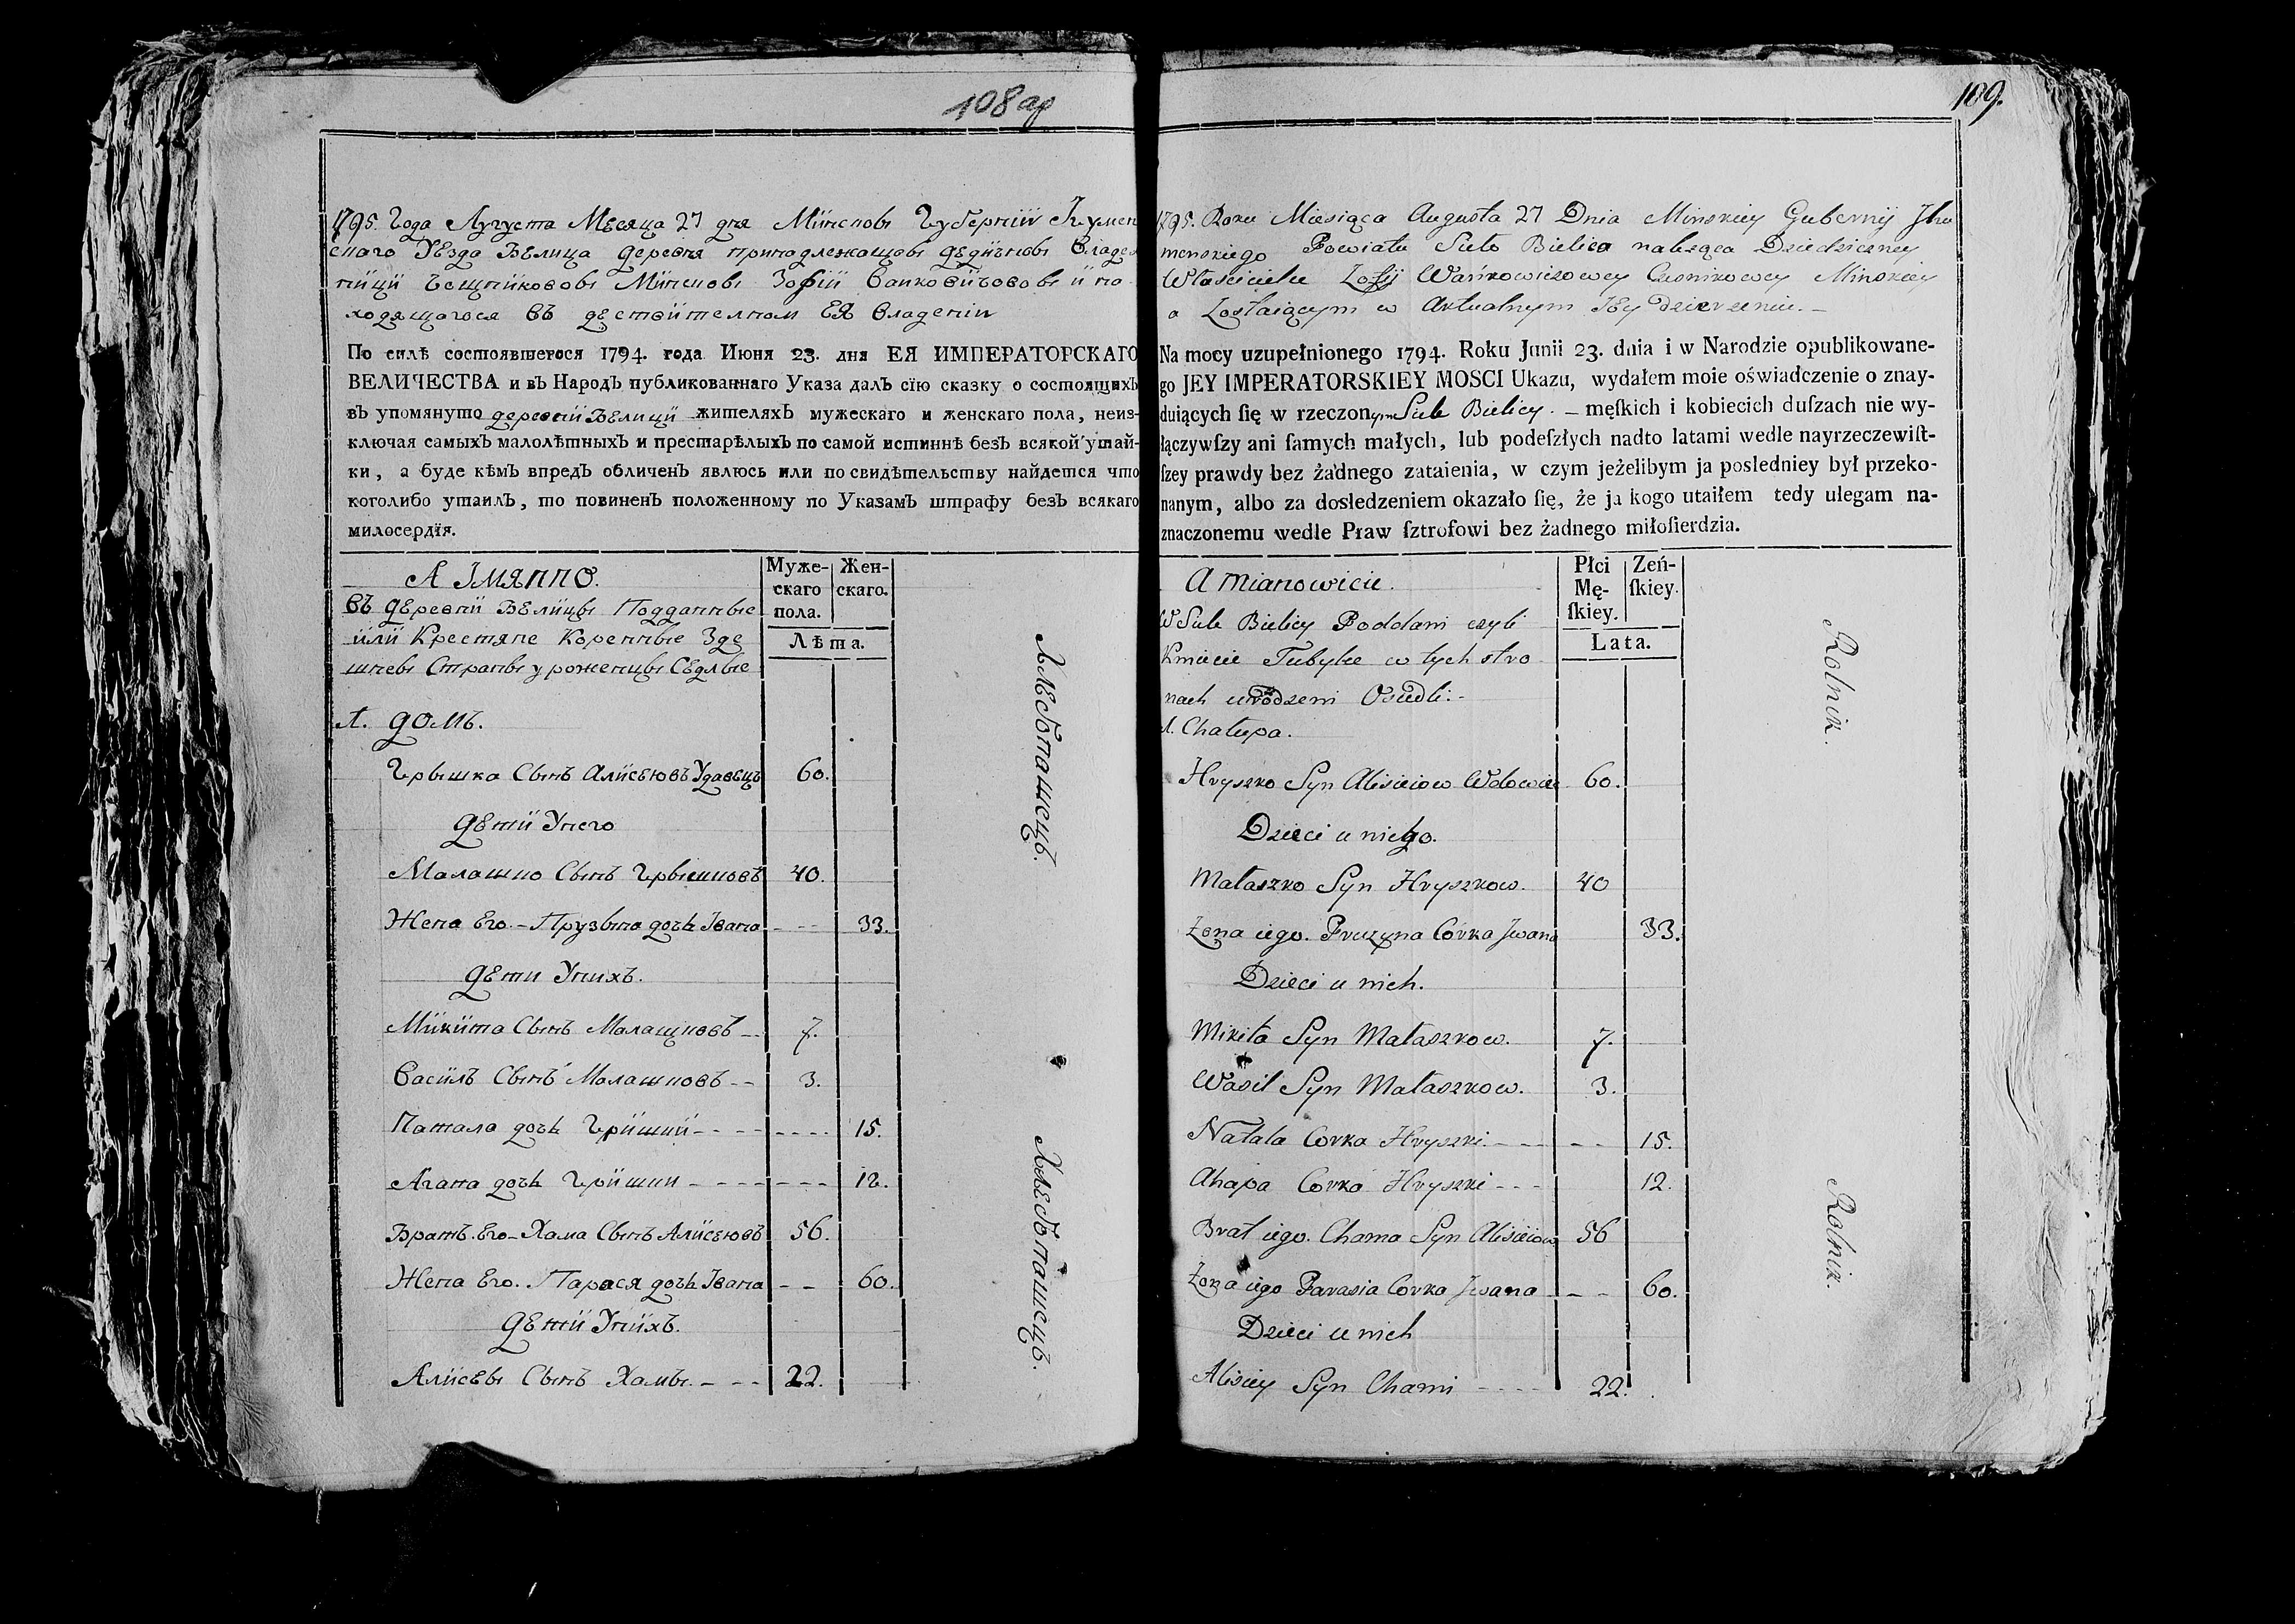 108 ар
1795. Года Августа Месяца 27 дня Минской Губернии Игумен
ского Уезда Белица деревня принадлежащой дедичной владе
ници Чещниковой Минской Зофии Ванковичовой и на
ходящагося въ действителном ЕЯ владении
По силѣ состоявшегося 1794. года Июня 23. дня ЕЯ ИМПЕРАТОРСКАГО
ВЕЛИЧЕСТВА и въ НародЪ публикованнаго Указа далЪ сїю сказку о состоящихЪ
вЪ упомянуто деревни Велици жителяхЪ мужескаго и женскаго пола, неиз-
ключая самыхЪ малолѣтныхЪ и престарѣлыхЪ по самой истиннѣ безЪ всякой утай-
ки, а буде кѣмЪ впредЪ обличенЪ явлюсь или по свидѣтельству найдется что
коголибо утаилЪ, то повиненЪ положенному по УказамЪ штрафу безЪ всякаго
милосердїя.
А Имянно.
Въ деревни Велицы Подданные
или Крестяне Коренные Зде
шней Страны уроженцы Седлые
Муже-
скаго
пола.
Жен-
скаго.
Лѣта.
1. Домъ.
Грышка Сынъ Алисеювъ Удавецъ 60.
Дети Унего
Малашко Сынъ Грышковъ 40.
Жена Его - Прузына дочь Ивана - - - 33.
Дети Унихъ.
Микита Сынъ Малашковъ - 7.
Василъ Сынъ Малашковъ - - 3.
Натала дочь Гришки - - - - - - - 15.
Агапа дочь Гришки - - - - - - - 12.
Братъ Его - Хама Сынъ Алисеювъ 56.
Жена Его. Парася дочь Ивана - - 60.
Дети Унихъ.
Алисей Сынъ Хамы. - - - 22.
Хлебопашецъ.
Хлебопашецъ.
109.
1795. Roku Miesiąca Augusta 27 Dnia Minskiey Gubernij Ihu
menskiego Powiatu Sieło Bielica należąca Dziedziczney
Właścicielce Zofij Wańkowiczowey Czesnikowey Minskiey
a Zostaiącym w Aktualnym Jey dzierzeniu. -
Na mocy uzupełnionego 1794. Roku Junii 23. dnia i w Narodzie opublikowane-
go JEY IMPERATORSKIEY MOSCI Ukazu, wydałem moie oświadczenie o znay-
duiących ſię w rzeczonym Siele Bielicy. - męſkich i kobiecich duſzach nie wy-
łączywſzy ani ſamych małych, lub podeſzłych nadto latami wedle nayrzeczewiſt-
ſzey prawdy bez żadnego zataienia, w czym jeżelibym ja posledniey był przeko-
nanym, albo za dosledzeniem okazało ſię, że ja kogo utaiłem tedy ulegam na-
znaczonemu wedle Praw ſztrofowi bez żadnego miłoſierdzia.
A mianowicie.
W Siele Bielicy Poddani czyli
Kmiecie Tubylce w tych stro
nach urodzeni Osiedli: -
Płci
Mę-
ſkiey.
Zeń-
ſkiey.
Lata.
1. Chałupa.
Hryszko Syn Alisieiow Wdowiec 60.
Dzieci u niego.
Małaszko Syn Hryszkow. 40
Żona iego. Pruzyna Córka Jwana 33.
Dzieci u nich.
Mikita Syn Małaszkow. 7.
Wasil Syn Małaszkow. 3.
Natala Corka Hryszki - - - - - 15.
Ahapa Corka Hryszki - - - 12.
Brat iego. Chama Syn Alisieiow 56
Żona iego Parasia Corka Jwana - - - 60.
Dzieci u nich
Alisiey Syn Chami - - - - 22.
Rolnik.
Rolnik.